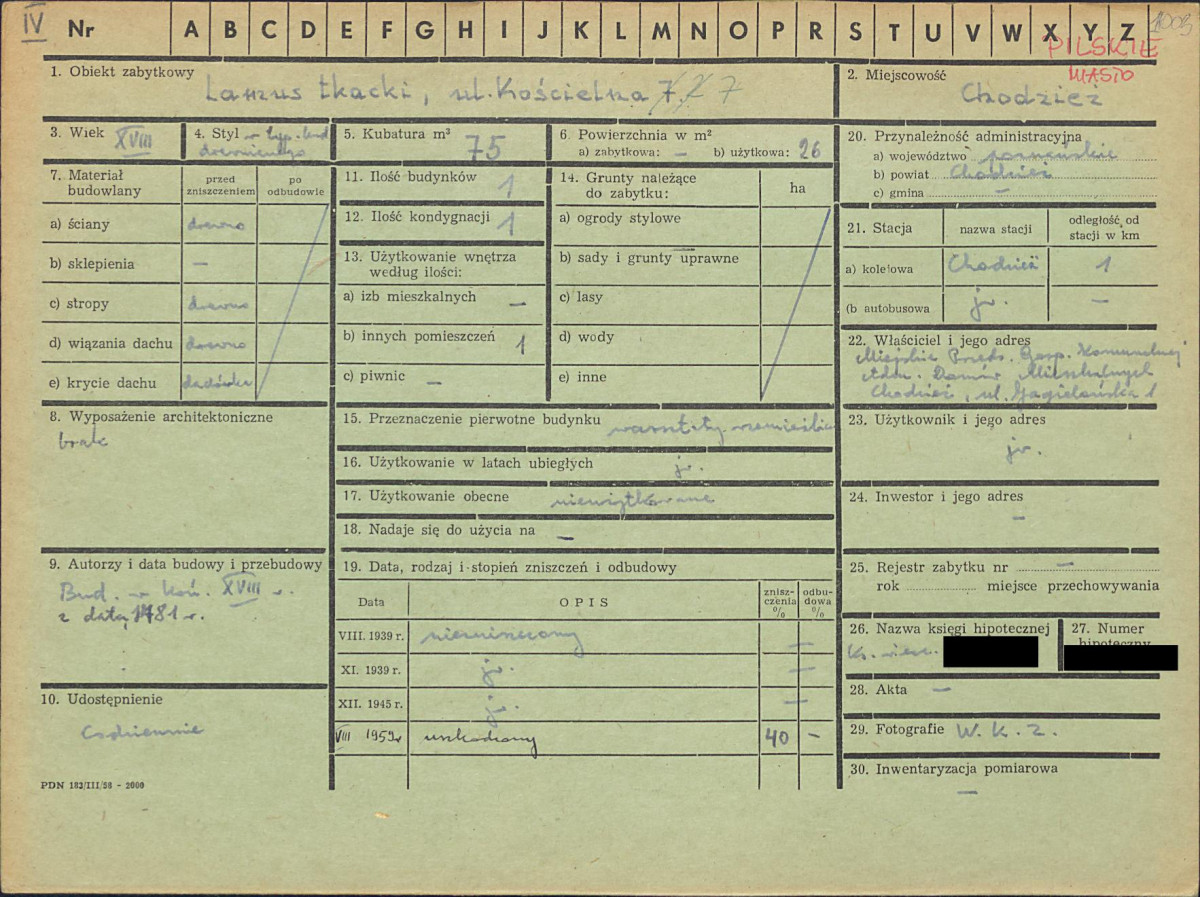 IV Nr A B C D E F G H I J K L M N O P R S T U V W X Y Z
PILSKIE
MIASTO
1. Obiekt zabytkowy
Lamus tkacki, ul. Kościelna 7
2. Miejscowość
Chodzież
3. Wiek XVIII
4. Styl w typ. bud
drewnianego
5. Kubatura m³ 75
6. Powierzchnia w m²
a) zabytkowa: — b) użytkowa: 26
7. Materiał budowlany
przed zniszczeniem
po odbudowie
a) ściany drewno
b) sklepienia —
c) stropy drewno
d) wiązania dachu drewno
e) krycie dachu dachówka
8. Wyposażenie architektoniczne
brak
9. Autorzy i data budowy i przebudowy
Bud. w koń. XVIII w.
z datą 1781 r.
10. Udostępnienie
Codziennie
PDN 182/III/58 - 2000
11. Ilość budynków 1
12. Ilość kondygnacji 1
13. Użytkowanie wnętrza
według ilości:
a) izb mieszkalnych —
b) innych pomieszczeń 1
c) piwnic —
14. Grunty należące
do zabytku:
ha
a) ogrody stylowe
b) sady i grunty uprawne
c) lasy
d) wody
e) inne
15. Przeznaczenie pierwotne budynku warsztaty
16. Użytkowanie w latach ubiegłych jw.
17. Użytkowanie obecne nieużytkowane
18. Nadaje się do użycia na —
19. Data, rodzaj i stopień zniszczeń i odbudowy
Data OPIS
znisz-
czenia
%
odbu-
dowa
%
VIII. 1939 r. niezniszczony —
XI. 1939 r. jw. —
XII. 1945 r. jw. —
VIII 1959r uszkodzony 40 —
20. Przynależność administracyjna
a) województwo poznańskie
b) powiat Chodzież
c) gmina —
21. Stacja
nazwa stacji
odległość od
stacji w km
a) kolejowa Chodzież 1
(b autobusowa jw. —
22. Właściciel i jego adres
Miejskie Przeds. Gosp. Komunalnej
Adm. Domów Mieszkalnych
Chodzież, ul. Jagiellońska 1
23. Użytkownik i jego adres
jw.
24. Inwestor i jego adres
—
25. Rejestr zabytku nr —
rok miejsce przechowywania
26. Nazwa księgi hipotecznej
Ks. wiecz.
27. Numer
hipoteczny
28. Akta —
29. Fotografie W. K. Z.
30. Inwentaryzacja pomiarowa
—